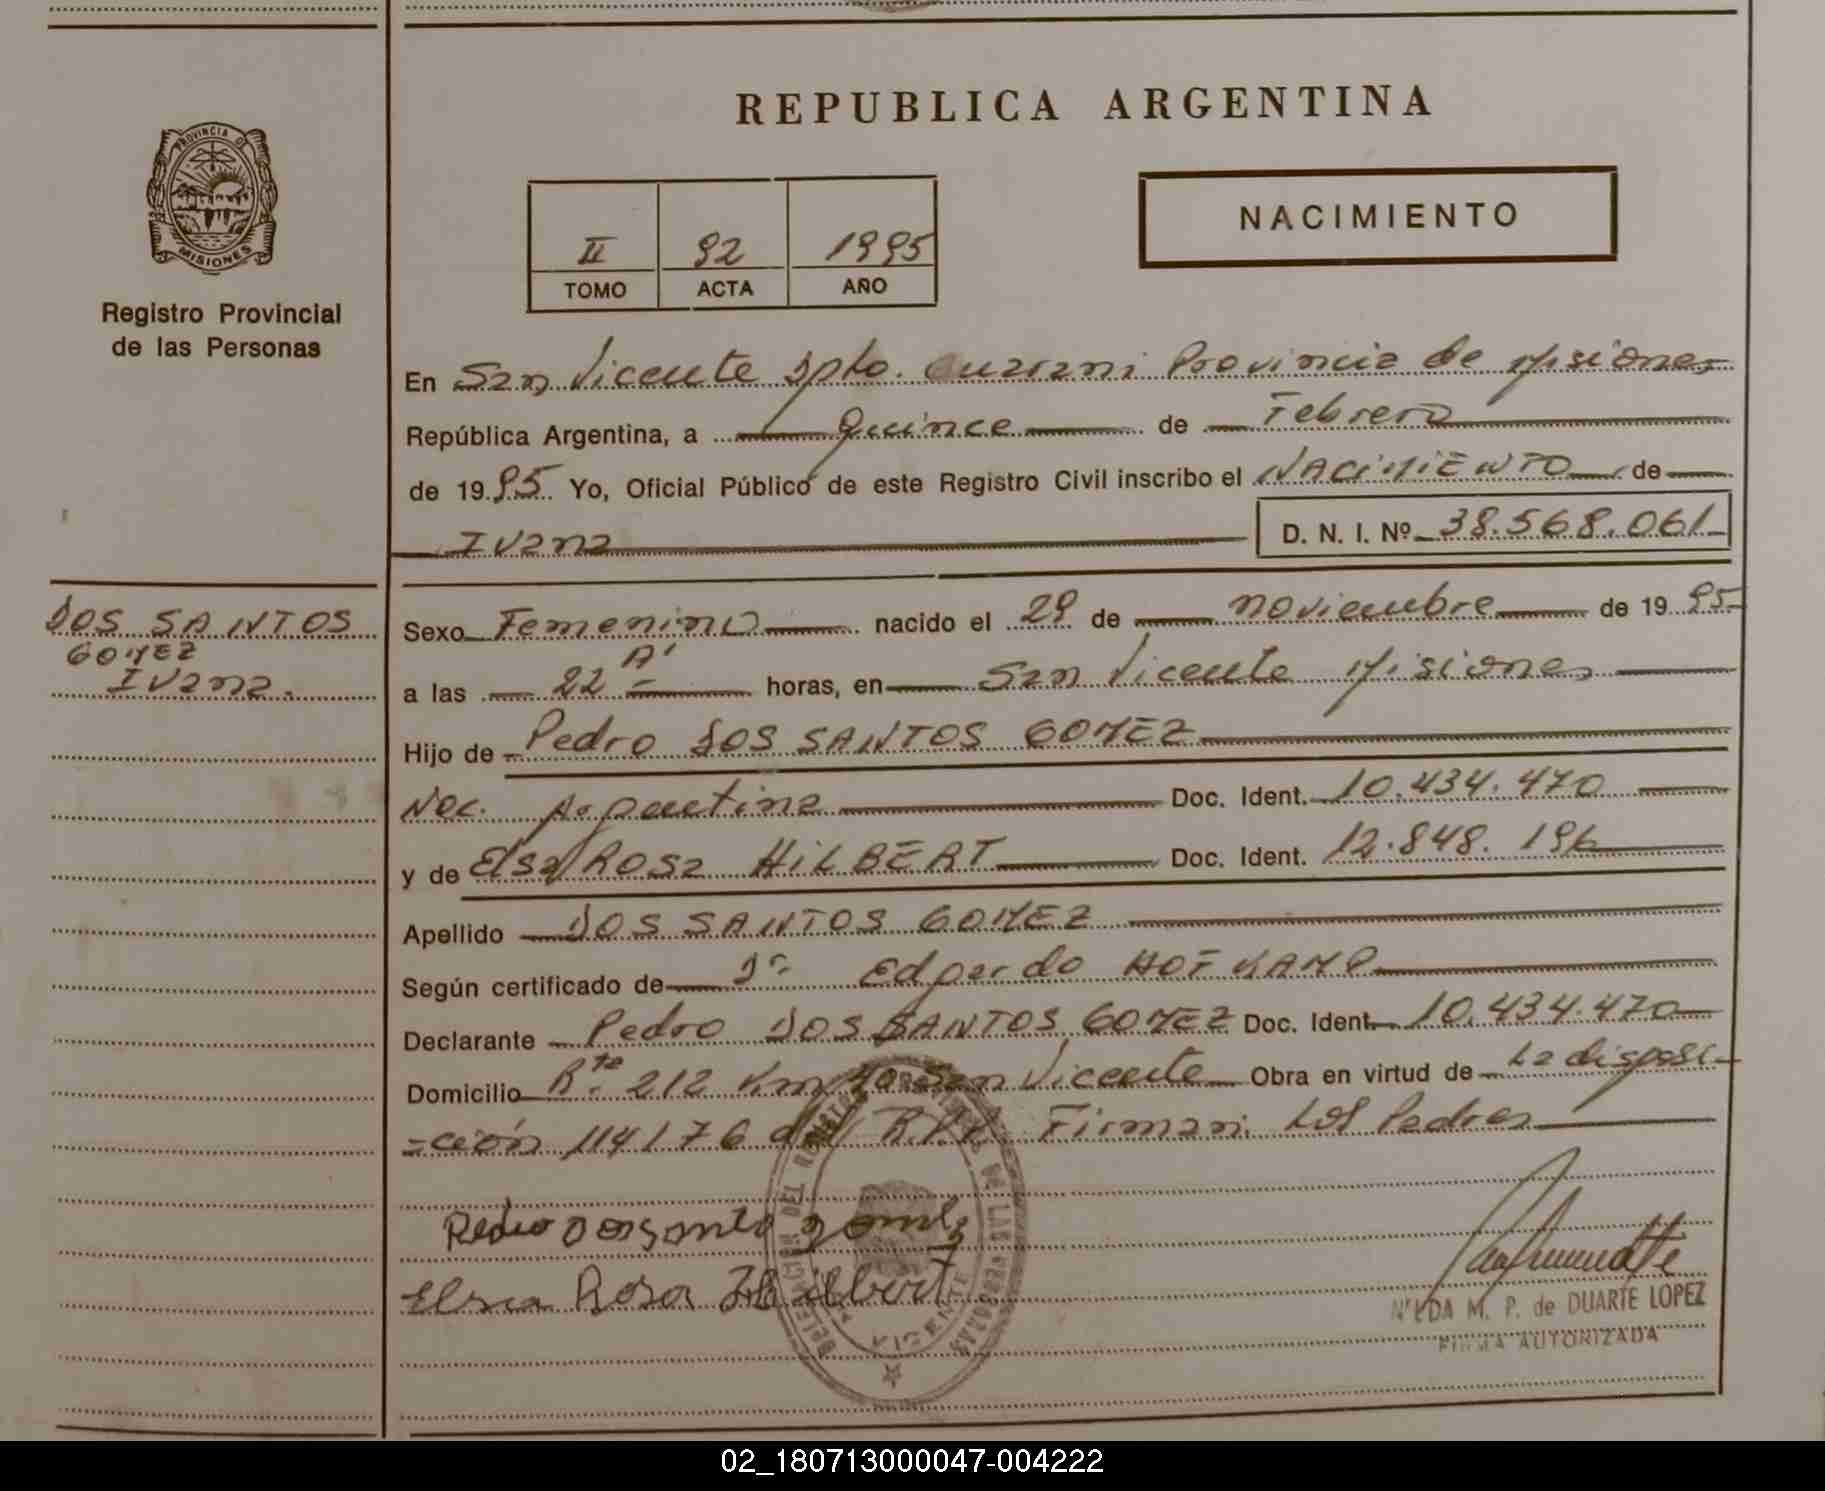 REPUBLICA ARGENTINA
PROVINCIA DE
MISIONES
Registro Provincial
de las Personas
NACIMIENTO
II 92 1995
TOMO ACTA AÑO
En San Vicente Dpto. Guarani Provincia de Misiones
República Argentina, a Quince de Febrero
de 1995 Yo, Oficial Público de este Registro Civil inscribo el NACIMIENTO de
Ivana D. N. I. Nº 38.568.061
DOS SANTOS
GOMEZ
Ivana.
Sexo Femenino nacido el 29 de noviembre de 1995
a las 22 horas, en San Vicente Misiones
Hijo de Pedro DOS SANTOS GOMEZ
Nac. Argentina Doc. Ident. 10.434.470
y de Elsa Rosa HILBERT Doc. Ident. 12.848.196
Apellido DOS SANTOS GOMEZ
Según certificado de Dr. Edgardo HOFKAMP
Declarante Pedro DOS SANTOS GOMEZ Doc. Ident. 10.434.470
Domicilio Rta. 212 Km San Vicente Obra en virtud de La disposi-
-ción 114/76 del R.P.P. Firman: Los Padres
Pedro dos santo gomez
Elsa Rosa Hilbert
DELEGACION DEL REGISTRO PROVINCIAL DE LAS PERSONAS
VICENTE
NELDA M. P. de DUARTE LOPEZ
FIRMA AUTORIZADA
02_180713000047-004222